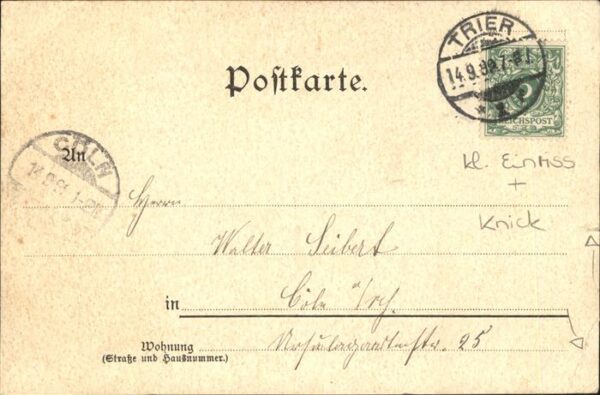 TRIER
14.9.99.7-8
* 1 *
REICHSPOST
Postkarte.
kl. Einriss
+
Knick
CÖLN
An
Herrn
Walter Seibert
in Cöln a/Rh.
Wohnung Ursulagartenstr. 25
(Straße und Hausnummer.)